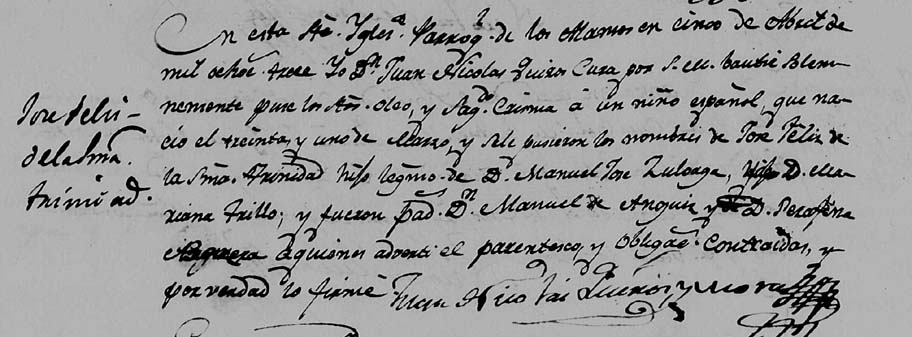 Jose Feliz
de la Sma.
trinidad.
En esta Sta. Ygles.a Parroq.l de los Martires en cinco de Abril de
mil ochos. trece Yo Dn. Juan Nicolas Quiros Cura por S. M. bautise Solem-
nemente puse los Stos. oleo, y Sag.do Crisma à un niño español, que na-
cio el treinta, y uno de Marzo, y se le pusieron los nombres de Jose Feliz de
la Sma. Trinidad hijo legmo. de D. Manuel Jose Zuloaga, y D. Ma-
riana trillo; y fueron pad.s Dn. Manuel de Anguis y D. Serafina
aquienes adverti el parentesco, y obligac.s contraidas, y
por verdad lo firmé. Juan Nicolas Quiros, y